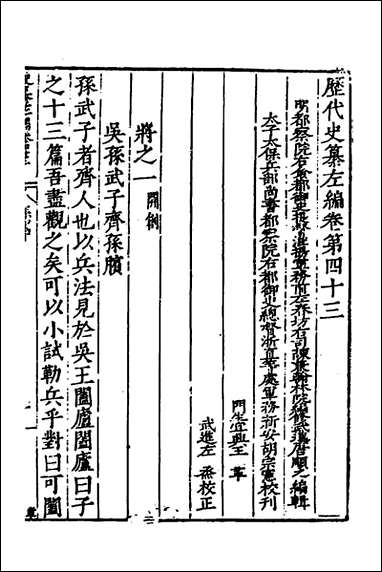 歷代史纂左編卷第四十三
明都察院右僉都御史提督軍務前左春坊右司諫兼翰林院編修武進唐順之編輯
太子太保兵部尚書都察院右都御史總督浙直等處軍務新安胡宗憲校刊
門生宜興王革
武進左烝校正
將之一 開創
吳孫武子齊孫臏
孫武子者齊人也以兵法見於吳王闔廬闔廬曰子
之十三篇吾盡觀之矣可以小試勒兵乎對曰可闔